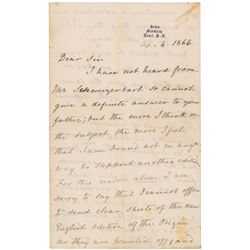 Down.
Bromley.
Kent. S.E.
Ap. 4. 1866
Dear Sir
I have not heard from
Mr Schweizerbart so cannot
give a definite answer to your
father; but the more I think on
the subject the more I feel
that I am bound not in any
way to support another edition.
For this reason alone I am
sorry to say that I cannot offer
to send clear sheets of the new
English edition of the Origin
as they are printed off; and